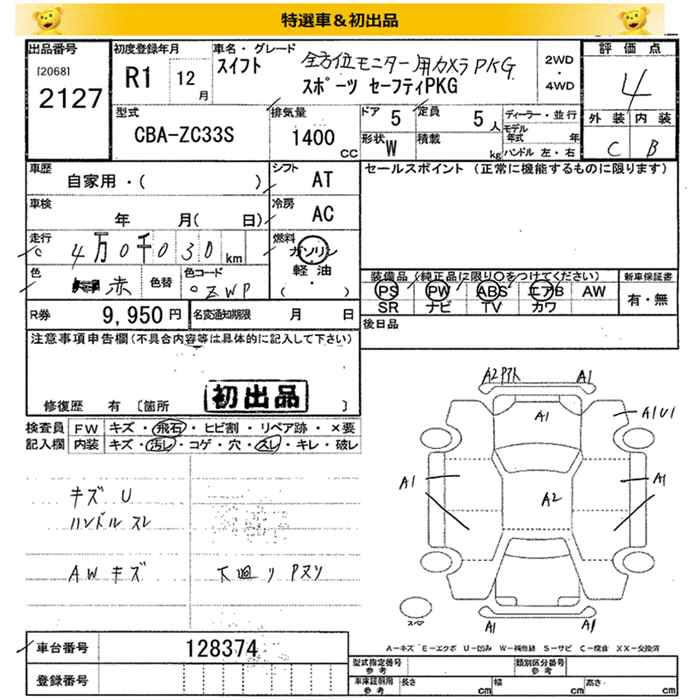 特選車＆初出品
出品番号
[2068]
2127
初度登録年月
R1 12月
車名・グレード
スイフト 全方位モニター用カメラPKG
スポーツ セーフティPKG
2WD
・
4WD
評価点
4
外装 内装
C B
型式
CBA-ZC33S
排気量
1400 CC
ドア 5
定員 5 人
形状 W
積載 kg
ディーラー・並行
モデル年式 年
ハンドル 左・右
車歴
自家用・( )
シフト AT
車検
年 月( 日)
冷房 AC
走行
4万0千030 km
燃料 ガソリン
軽油
( )
色 赤 色替
色コード
ZWP
R券 9,950 円
名変通知期限 月 日
セールスポイント (正常に機能するものに限ります)
装備品 (純正品に限り○をつけてください)
PS PW ABS エアB AW
SR ナビ TV カワ
新車保証書
有・無
後日品
注意事項申告欄 (不具合内容等は具体的に記入して下さい)
初出品
修復歴 有 [箇所 ]
検査員記入欄
FW キズ・飛石・ヒビ割・リペア跡・×要
内装 キズ・汚レ・コゲ・穴・スレ・キレ・破レ
キズ U
ハンドル スレ
AWキズ
下廻り Pヌリ
A1
A1
A1U1
A1
A1
A2
A1
A1
スペア
A-キズ E-エクボ U-凹み W-補修跡 S-サビ C-腐食 XX-交換済
車台番号 128374
登録番号
型式指定番号
参考
類別区分番号
参考
車庫証明用
参考
長さ cm 幅 cm 高さ cm